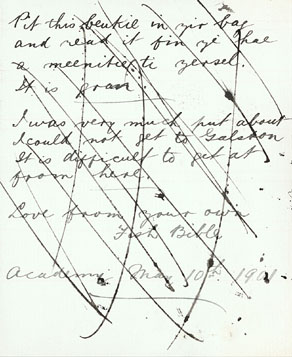 Pit this beukie in yir bag
and read it fin ye hae
a meenitie ti yersel.
It is gran.
I was very much put about
I could not get to Galston
It is difficult to get at
from here.
Love from your own
Fish Bible
Academy May 10th 1901